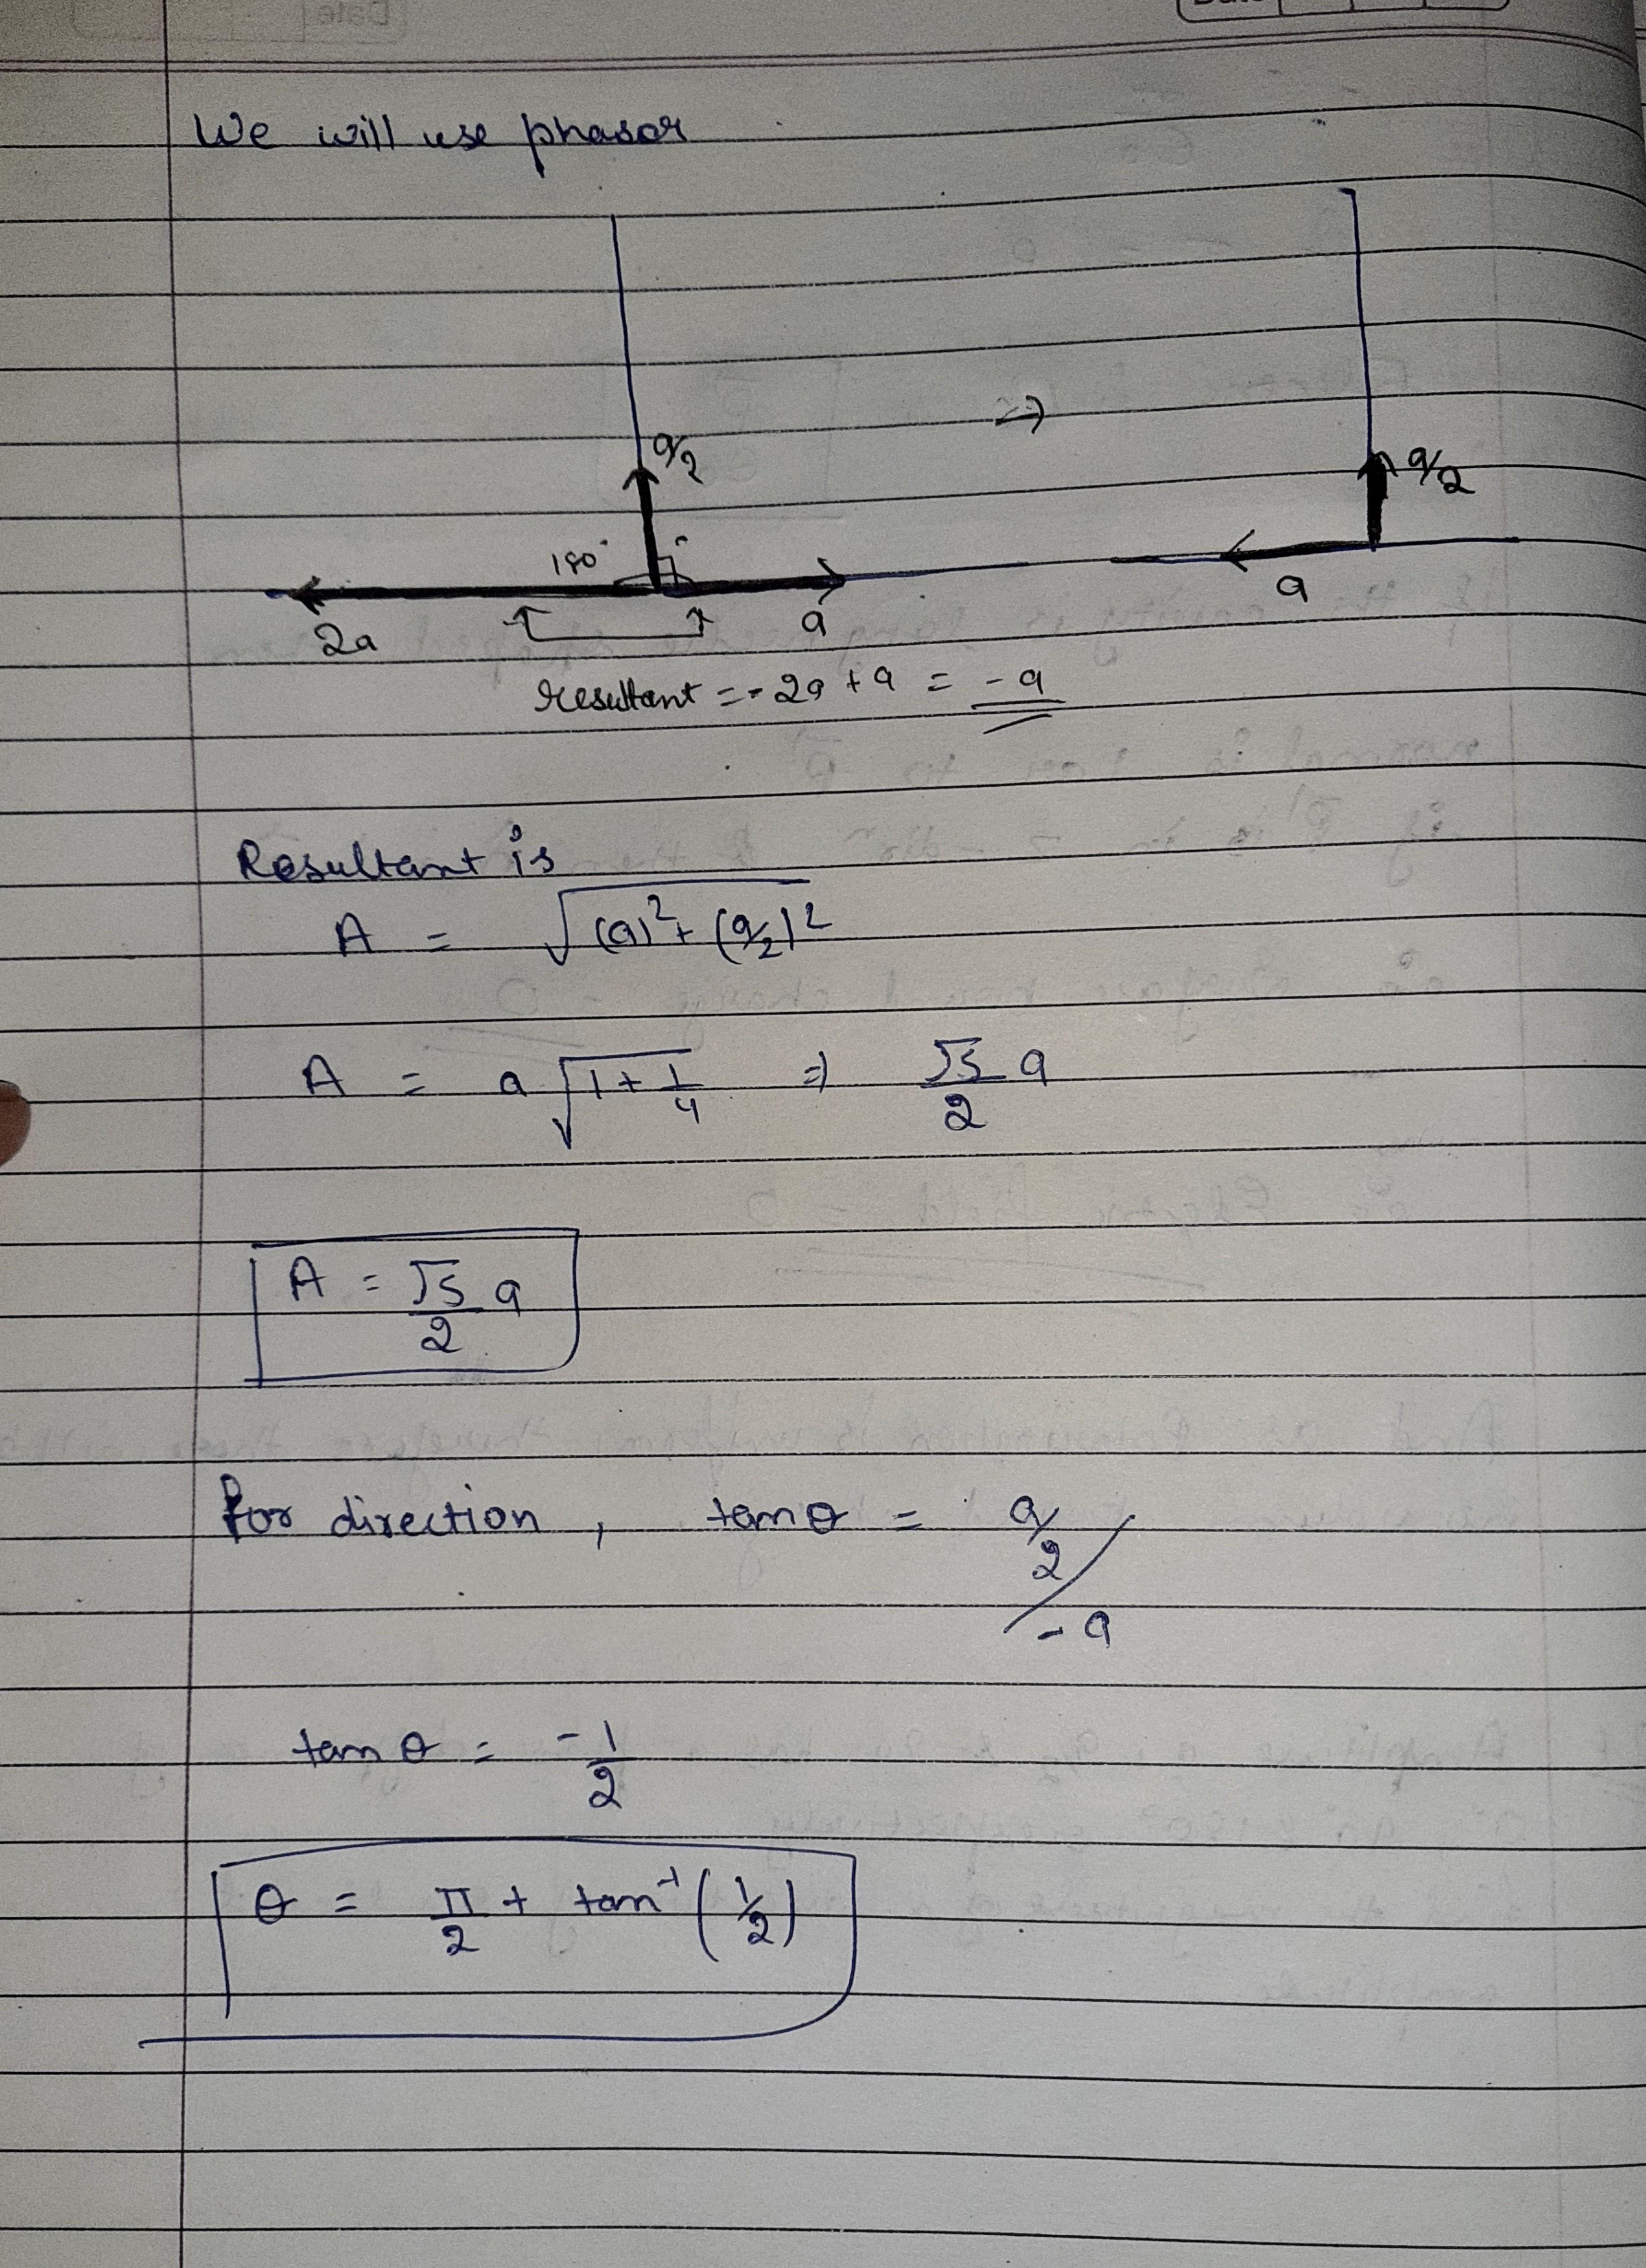 We will use phasor
a/2
⇒
a/2
180°
2a
a
a
resultant = -2a + a = -a
Resultant is
A = √(a)² + (a/2)²
A = a √1 + 1/4 ⇒ √5/2 a
A = √5/2 a
For direction, tan θ = a/2 / -a
tan θ = -1/2
θ = π/2 + tan⁻¹ (1/2)